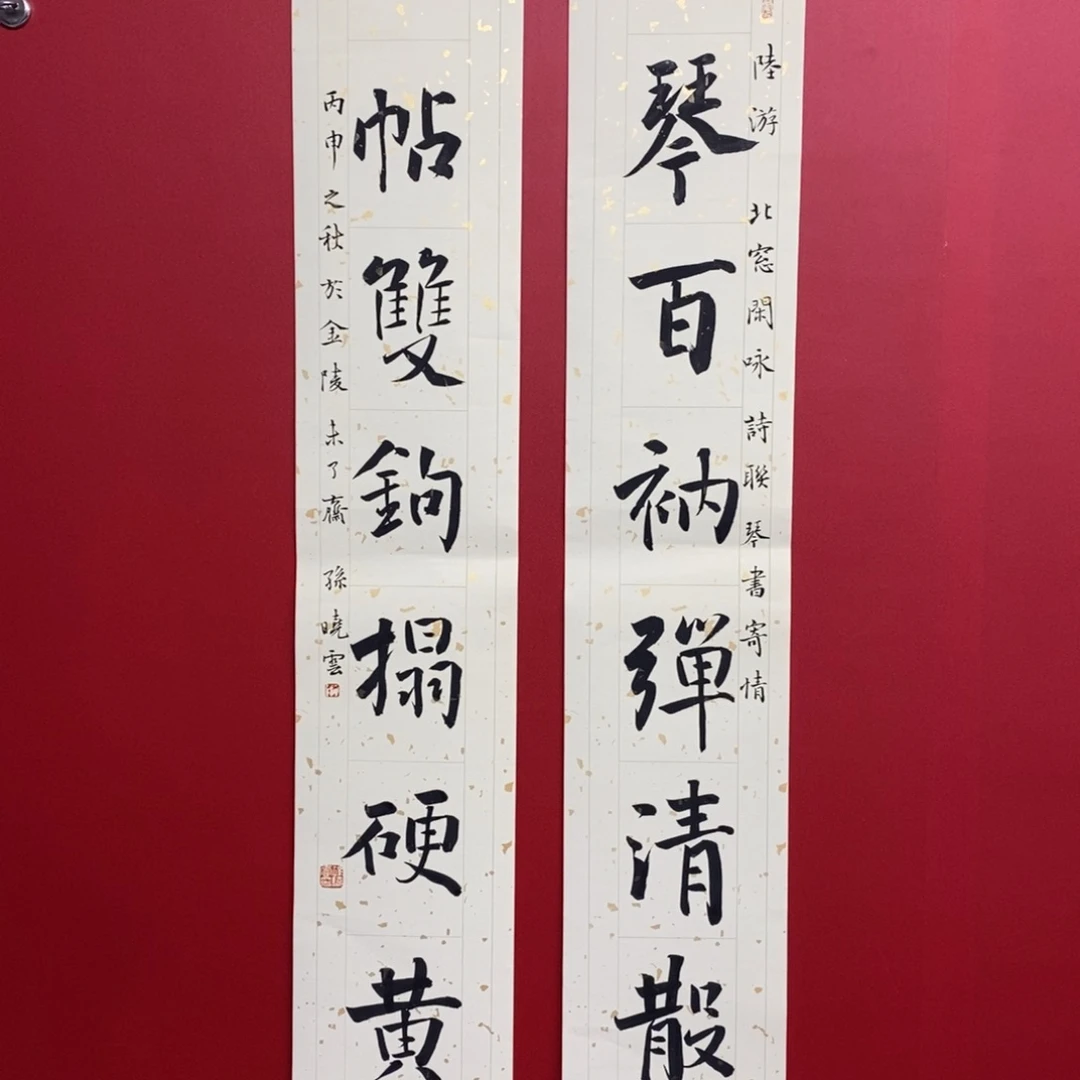 陸游 北窓閑咏 詩聯 琴書寄情
琴百衲彈清散
帖雙鉤搨硬黃
丙申之秋於金陵未了齋 孫曉雲